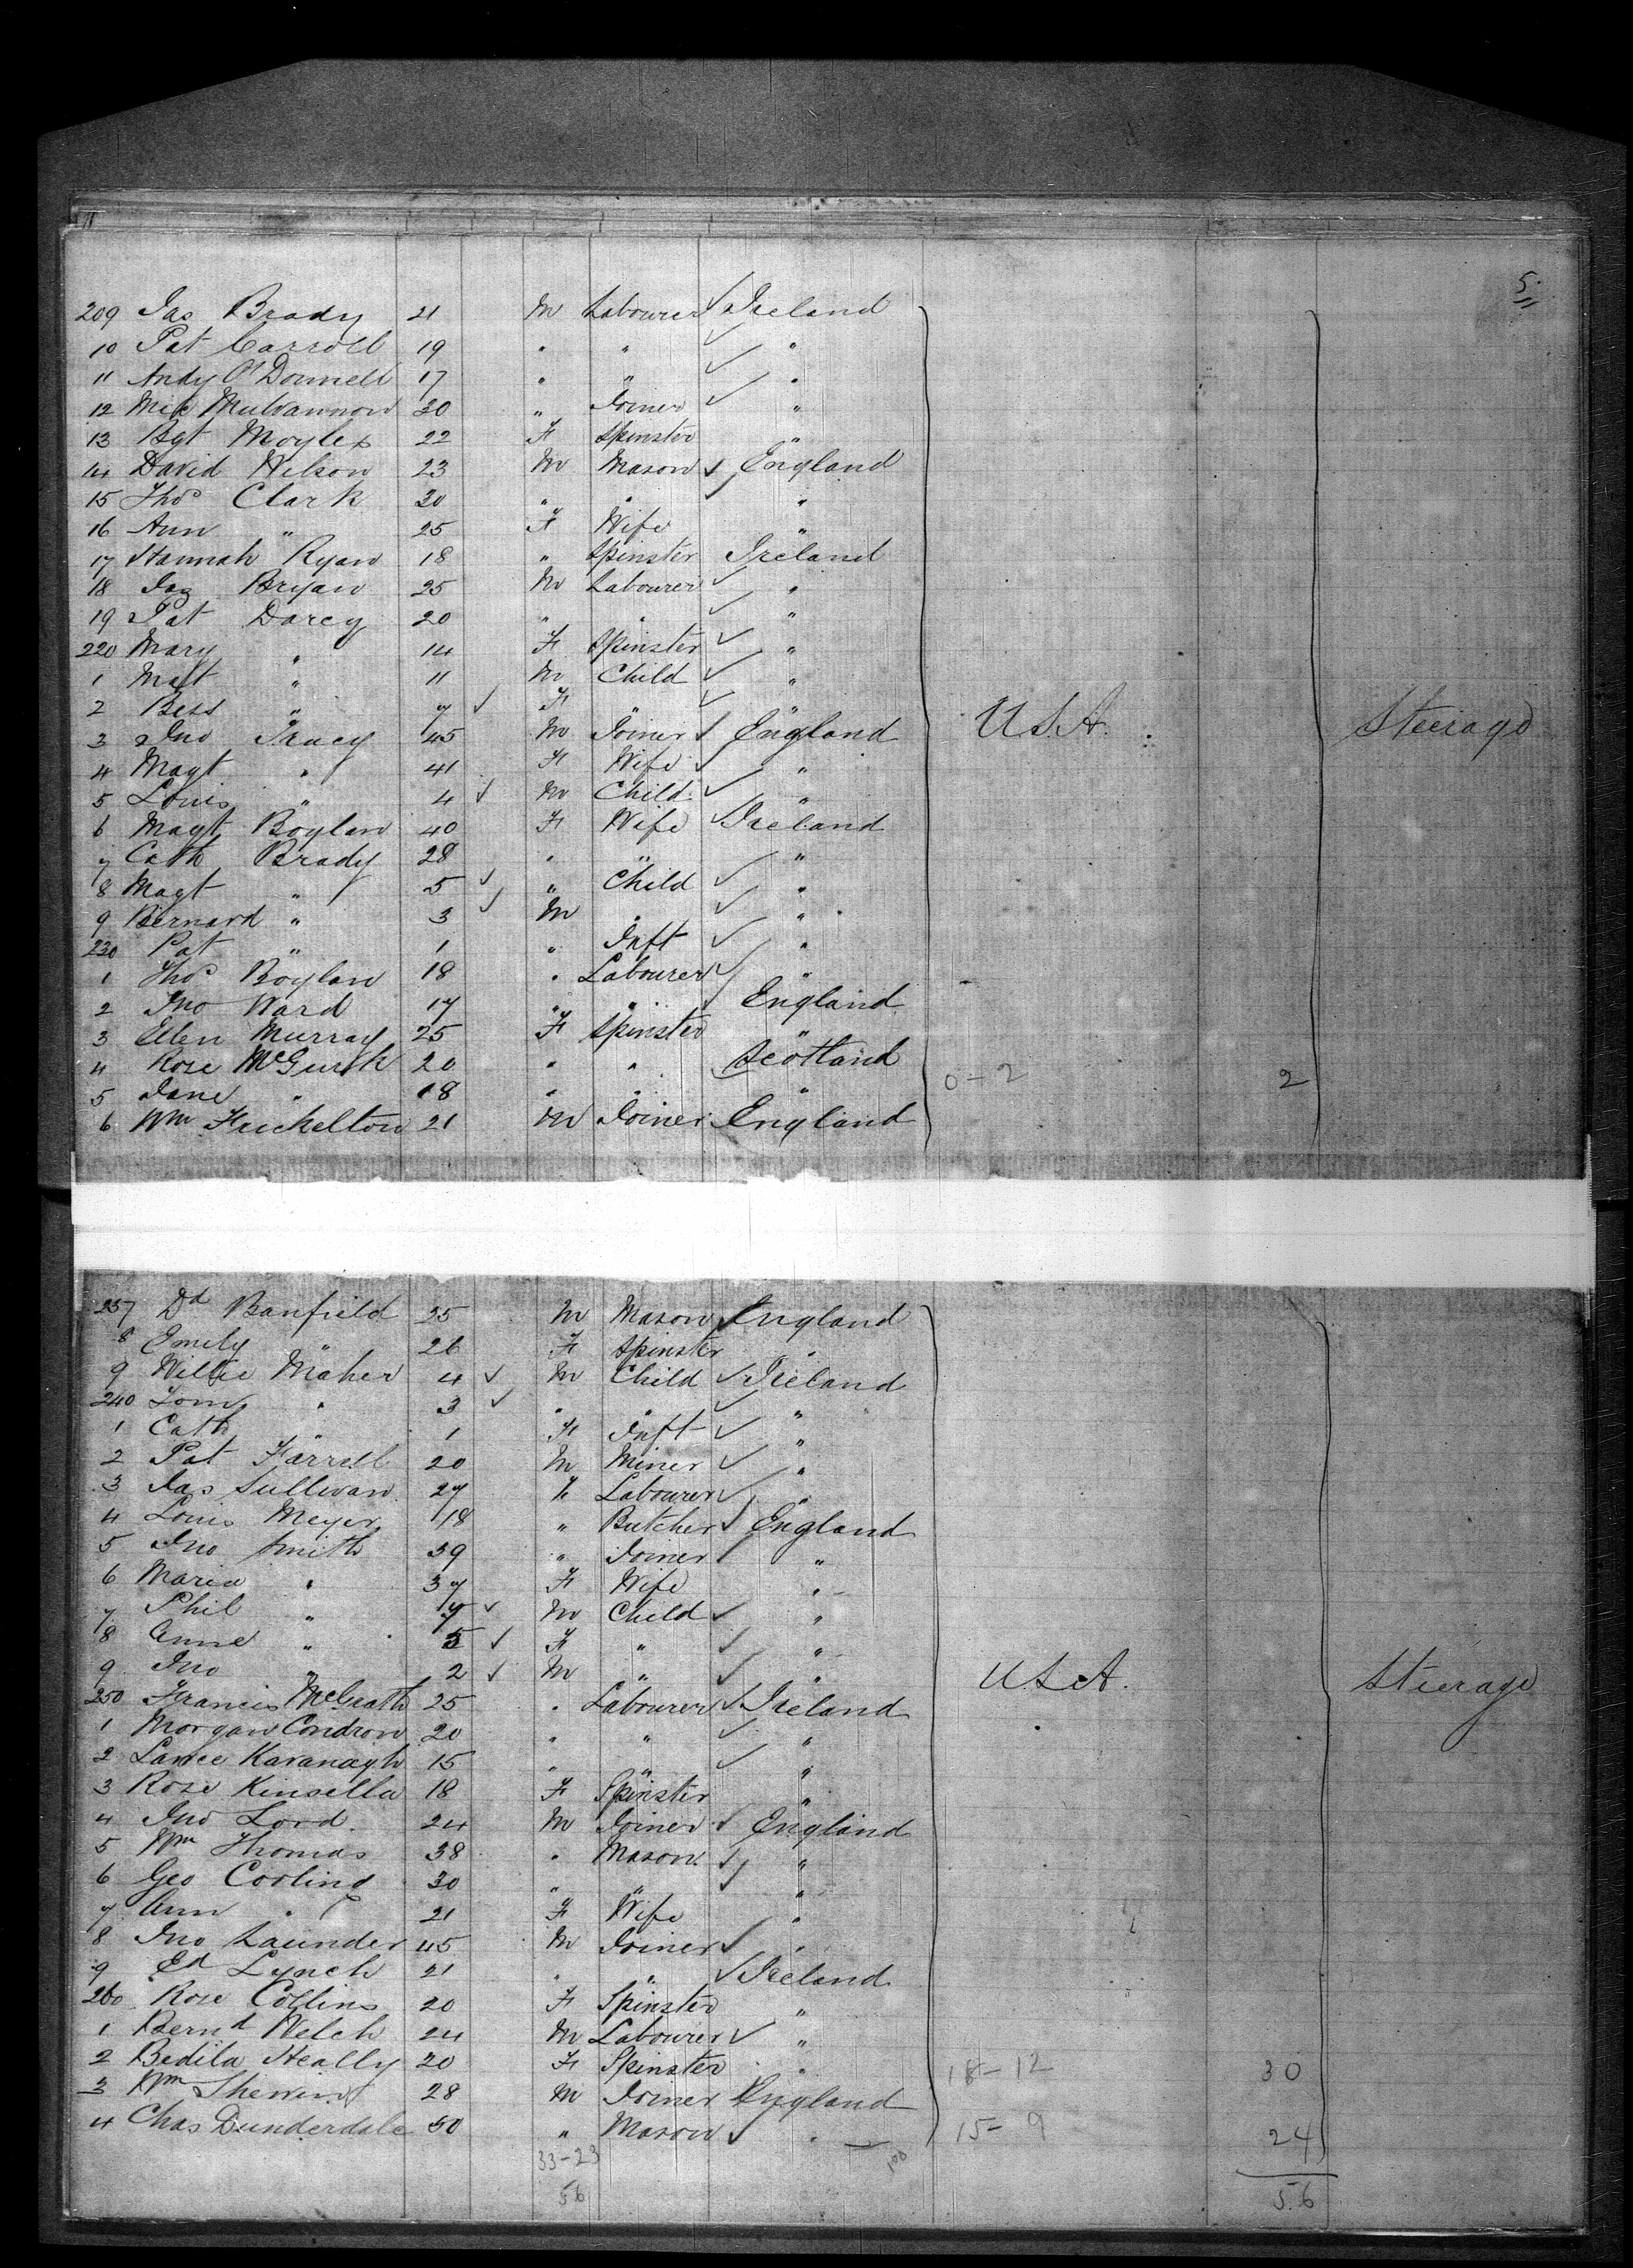 5
209 Jas Brady 21 M Labourer ✓ Ireland
10 Pat Carroll 19 " " ✓ "
11 Andy O'Donnell 17 " " ✓ "
12 Mik Mulvannon 20 " Joiner ✓ "
13 Bgt Moyles 22 F Spinster "
14 David Wilson 23 M Mason ✓ England
15 Thos Clark 20 " " ✓ "
16 Ann " 25 F Wife "
17 Hannah Ryan 18 " Spinster Ireland
18 Jas Bryan 25 M Labourer ✓ "
19 Pat Darcy 20 " " ✓ "
220 Mary " 14 F Spinster ✓ "
1 Matt " 11 M Child ✓ "
2 Bess " 7 ✓ F ✓ "
3 Jno Tracy 45 M Joiner ✓ England U.S.A. Steerage
4 Magt " 41 F Wife ✓ "
5 Louis " 4 ✓ M Child ✓ "
6 Magt Boylan 40 F Wife ✓ Ireland
7 Cath Brady 28 " " "
8 Magt " 5 ✓ " Child ✓ "
9 Bernard " 3 ✓ M " ✓ "
230 Pat " 1 " Inft ✓ "
1 Thos Boylan 18 " Labourer ✓ "
2 Jno Ward 17 " " ✓ England
3 Ellen Murray 25 F Spinster "
4 Rose McGurk 20 " " Scotland 0-2 2
5 Jane " 18 " " "
6 Wm Frickelton 21 M Joiner England
237 Dd Banfield 25 M Mason England
8 Emily " 26 F Spinster "
9 Willie Maher 4 ✓ M Child ✓ Ireland
240 Tom " 3 ✓ " " ✓ "
1 Cath " 1 F Inft ✓ "
2 Pat Farrell 20 M Miner ✓ "
3 Jas Sullivan 27 " Labourer ✓ "
4 Louis Meyer 18 " Butcher ✓ England
5 Jno Smith 39 " Joiner ✓ "
6 Maria " 37 F Wife "
7 Phil " 7 ✓ M Child ✓ "
8 Anne " 5 ✓ F " ✓ "
9 Jno " 2 ✓ M " ✓ " U.S.A. Steerage
250 Francis McGrath 25 " Labourer ✓ Ireland
1 Morgan Condron 20 " " ✓ "
2 Lance Kavanagh 15 " " ✓ "
3 Rose Kinsella 18 F Spinster "
4 Jno Lord 24 M Joiner ✓ England
5 Wm Thomas 38 " Mason ✓ "
6 Geo Cooling 30 " " ✓ "
7 Ann " 21 F Wife "
8 Jno Launder 45 M Joiner ✓ "
9 Ed Lynch 21 " " ✓ Ireland
260 Rose Collins 20 F Spinster "
1 Bernd Welch 24 M Labourer ✓ "
2 Bedila Heally 20 F Spinster " 18-12 30
3 Wm 28 M Joiner England
4 Chas Dunderdale 50 " Mason ✓ " 15-9 24
33-23
56 56